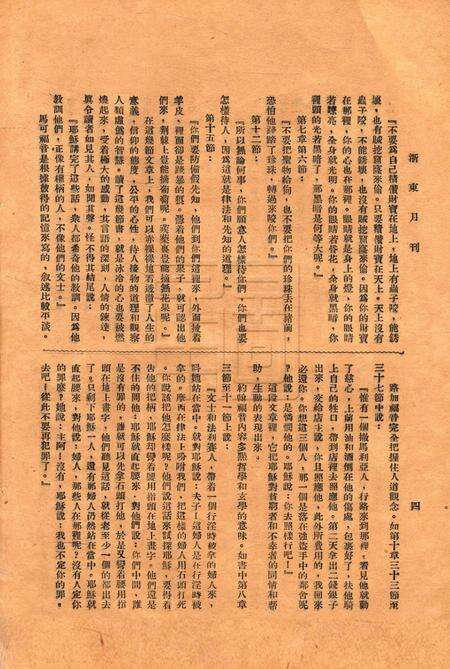 浙東月刊
四
『不要爲自己積儹財寶在地上，地上有蟲子咬，能銹
壞，也有賊挖窟窿來偷。只要積儹財寶在天上。天上沒有
蟲子咬，不能銹壞，也沒有賊挖窟窿來偷。因爲你的財寶
在那裡，你的心也在那裡。眼睛就是身上的燈，你的眼睛
若瞭亮，全身就光明。你的眼睛若昏花，全身就黑暗，你
裡頭的光若黑暗了，那黑暗是何等大呢。』
第七章第六節：
『不要把聖物給狗，也不要把你們的珍珠丟在豬前，
恐怕他踐踏了珍珠，轉過來咬你們。』
第十二節：
『所以無論何事，你們願意人怎樣待你們，你們也要
怎樣待人，因爲這就是律法和先知的道理。』
第十五節：
『你們要防備假先知，他們到你們這裡來，外面披着
羊皮，裡面卻是殘暴的狼。憑着他們的果子，就可認出他
們來，荊棘上豈能摘葡萄呢。蒺藜裏豈能摘無花果呢。』
在這幾節文章上，我們可以赤裸裸地看透澈了人生的
意義，信仰的態度，公平的心性，待人接物的道理和觀察
人類虛僞的智慧。讀了這幾節書，就是冰冷的心也要被燃
燒起來，受着極大的感動，其言語的深刻，人情的鍊達，
眞令讀者如見其人，如聞其聲。怪不得其結尾說：
『耶穌講完了這些話，衆人都希奇他的教訓。因爲他
教訓他們，正像有權柄的人，不像他們的文士。』
馬可福音是根據彼得的記憶來寫的，敘述比較平淡。
路加福音完全把握住人道觀念。如第十章三十三節至
三十七節中說：
『惟有一個撒馬利亞人，行路來到那裡，看見他就動
了慈心，上前用油和酒倒在他的傷處，包裹好了，扶他騎
上自己的牲口，帶到店裡去照應他。第二天拿出二錢銀子
出來，交店店主說，你且照應他，此外所費用的，我回來
必還你。你想這三個人，那一個是落在強盜手中的鄰舍呢
？他說：是憐憫他的。耶穌說：你去照樣行吧！』
這段文章裡，它把耶穌對貧窮者和不幸者的同情和幫
助，生動的表現出來。
約翰福音內容多點哲學和玄學的意味。如書中第八章
三節至十一節上說：
『文士和法利賽人，帶着一個行淫時被拿的婦人來，
叫她站在當中。就對耶穌說：夫子！這婦人是正在行淫時被
拿的。摩西在律法上吩咐我們，把這樣的婦人用石頭打死
，你說該把他怎樣呢？他們說這話來試探耶穌，要得着
告他的把柄，耶穌却彎着腰用指頭在地上畫字。他們還是
不住的問他，耶穌就直起腰來，對他們說：你們中間，誰
是沒有罪的，誰就可以先拿石頭打他。於是又彎着腰用指
頭在地上畫字，他們聽見這話，就從老至少一個的都出去
了。只剩下耶穌一人，還有那婦人仍然站在當中。耶穌就
直起腰來，對他說：婦人，那些人在那裡呢？沒有人定你
的罪麼？她說：主阿！沒有，耶穌說：我也不定你的罪。
去吧！從此不要再犯罪了。』